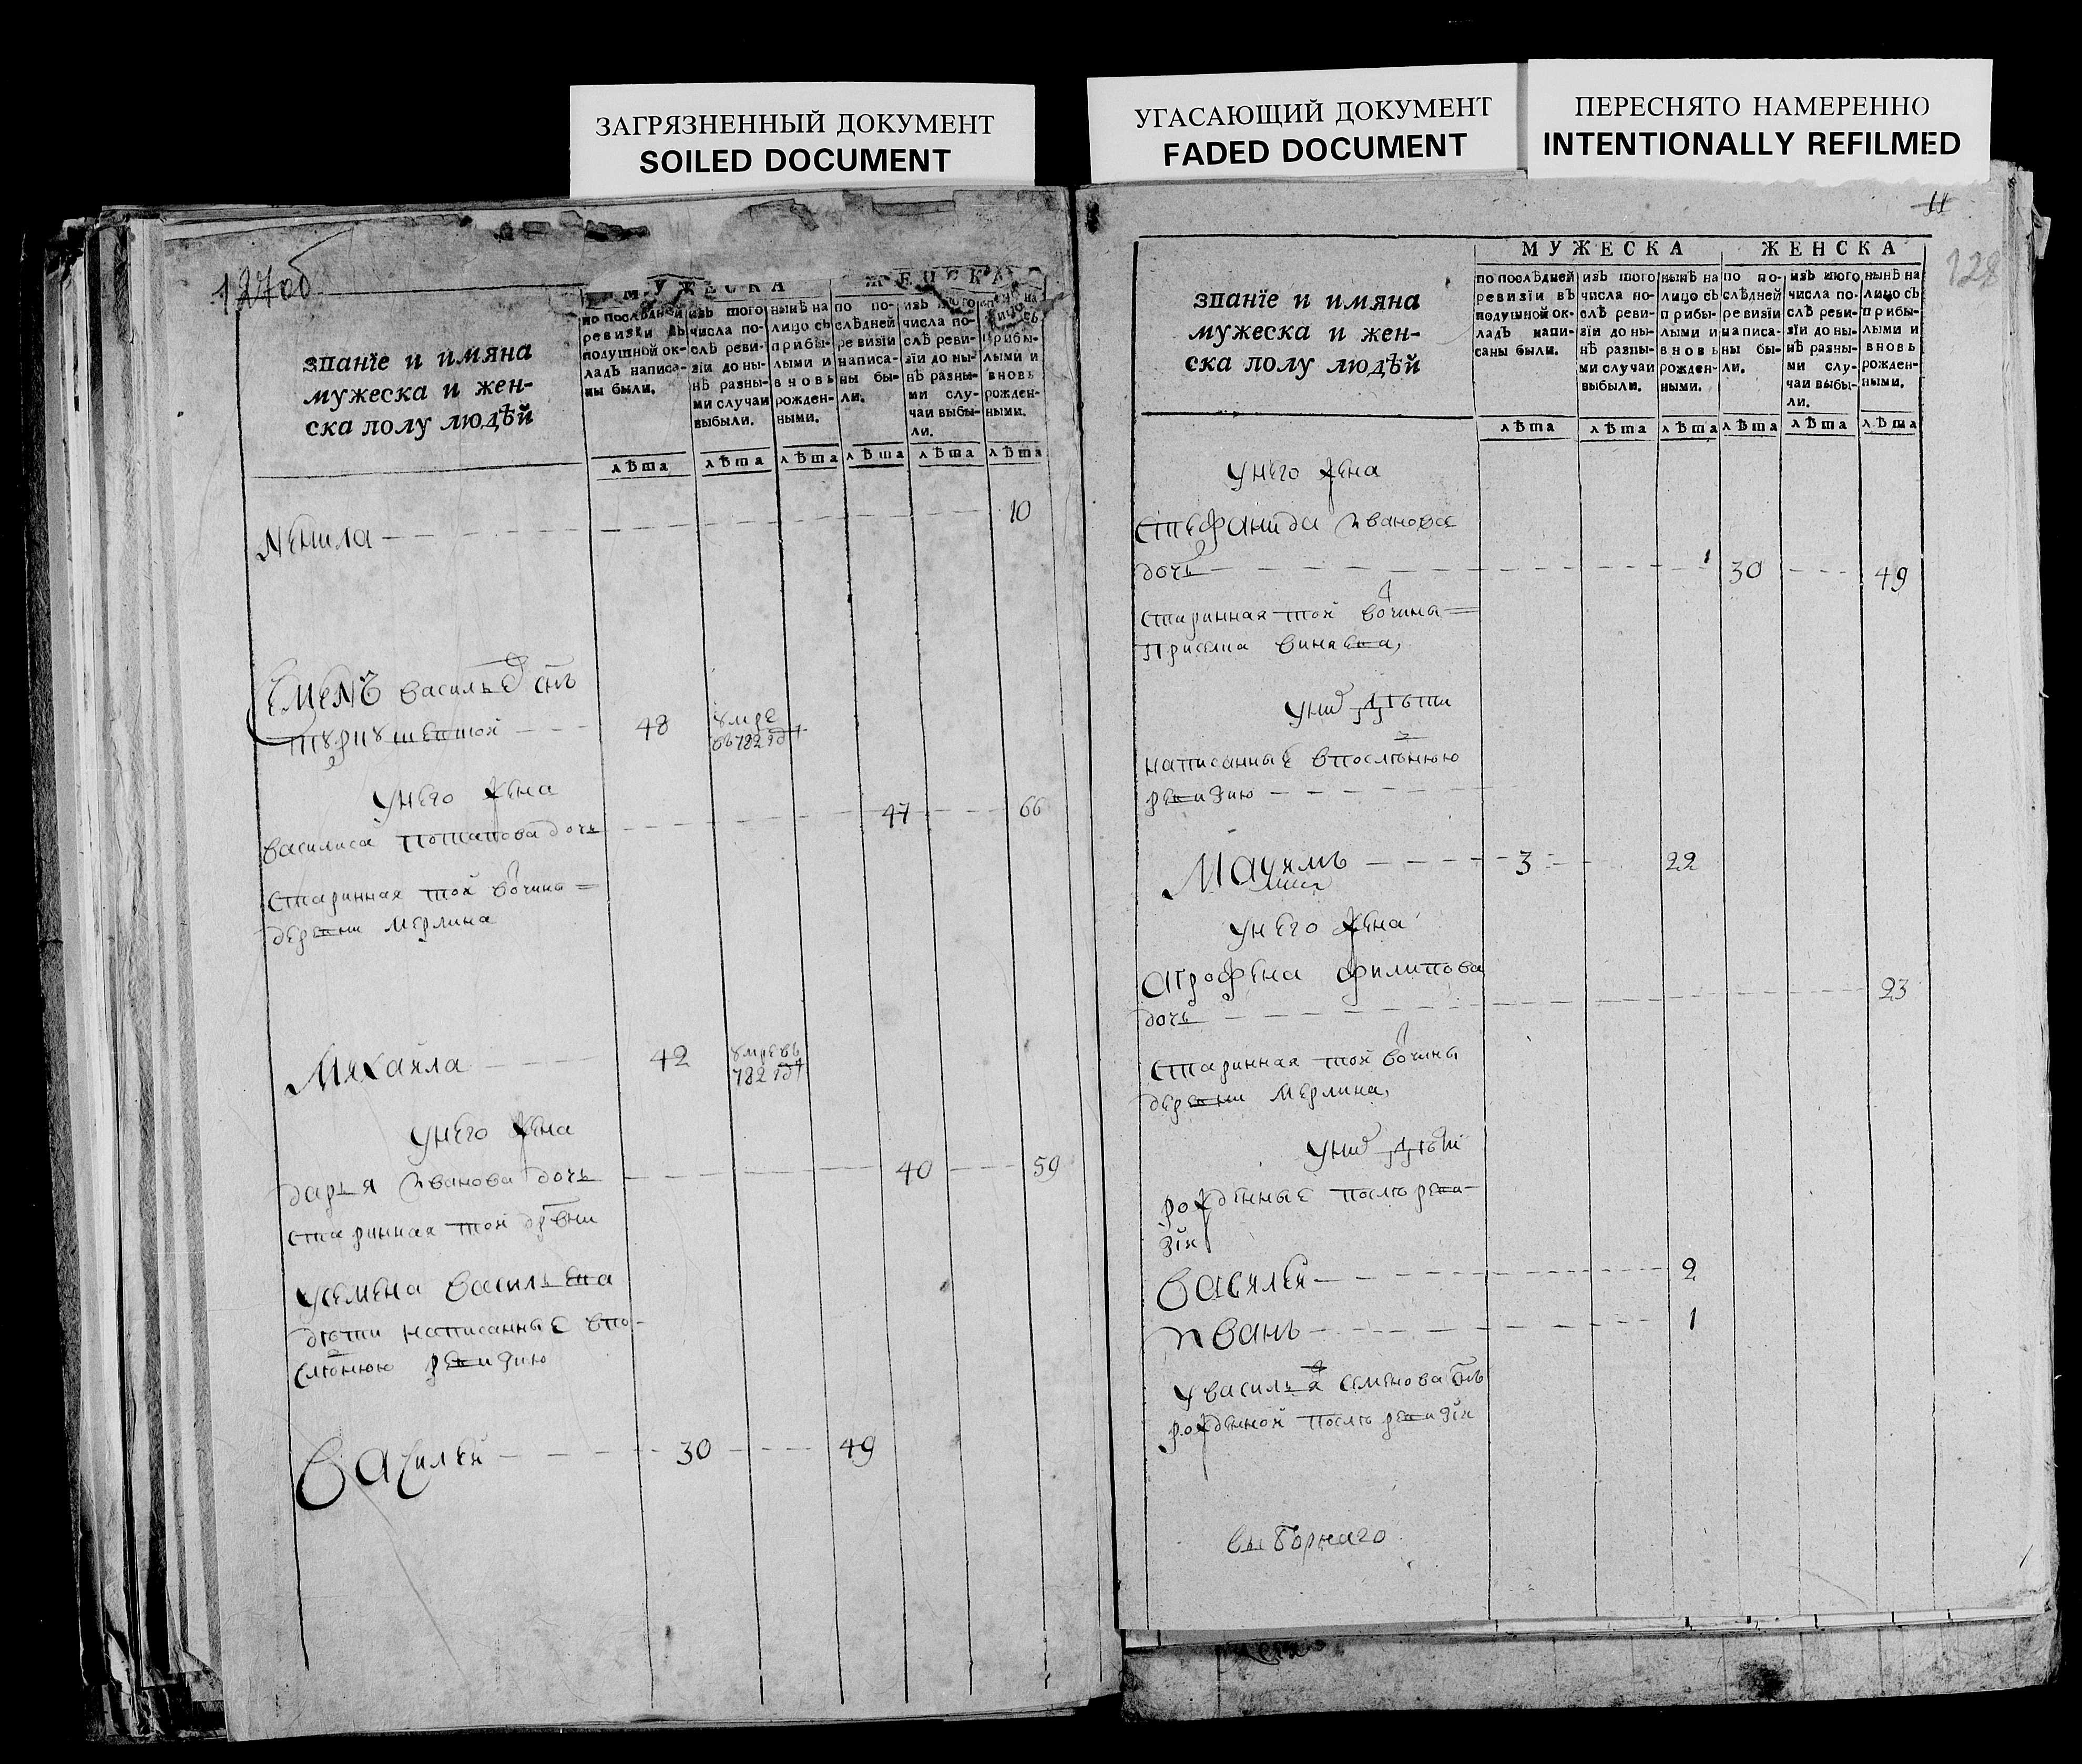 ЗАГРЯЗНЕННЫЙ ДОКУМЕНТ
SOILED DOCUMENT
УГАСАЮЩИЙ ДОКУМЕНТ
FADED DOCUMENT
ПЕРЕСНЯТО НАМЕРЕННО
INTENTIONALLY REFILMED
127об
МУЖЕСКА ЖЕНСКА
званїе и имяна
мужеска и жен-
ска полу людѣй
по послѣдней
ревизїи въ
подушной ок-
ладъ написа-
ны были.
изъ того
числа по-
слѣ реви-
зїи до ны-
нѣ разны-
ми случаи
выбыли.
нынѣ на
лицо съ
прибы-
лыми и
вновь
рожден-
ными.
по по-
слѣдней
ревизїи
написа-
ны бы-
ли.
изъ того
числа по-
слѣ реви-
зїи до ны-
нѣ разны-
ми слу-
чаи выбы-
ли.
нынѣ на
лицо съ
прибы-
лыми и
вновь
рожден-
ными.
лѣта лѣта лѣта лѣта лѣта лѣта
Ненила 10
Семенъ васильевъ снъ
48 умре
въ 782 году
У него жена
василиса потапова дочь 47 66
старинная той вочины
деревни мерлина
Михаила 42 умре въ
782 году
У него жена
дарья Иванова дочь 40 59
старинная той дрвни
У семена васильева
дѣти написанные в по-
слѣднюю ревизию
Василей 30 49
11
128
МУЖЕСКА ЖЕНСКА
званїе и имяна
мужеска и жен-
ска полу людѣй
по послѣдней
ревизїи въ
подушной ок-
ладъ напи-
саны были.
изъ того
числа по-
слѣ реви-
зїи до ны-
нѣ разны-
ми случаи
выбыли.
нынѣ на
лицо съ
прибы-
лыми и
вновь
рожден-
ными.
по по-
слѣдней
ревизїи
написа-
ны бы-
ли.
изъ того
числа по-
слѣ реви-
зїи до ны-
нѣ разны-
ми слу-
чаи выбы-
ли.
нынѣ на
лицо съ
прибы-
лыми и
вновь
рожден-
ными.
лѣта лѣта лѣта лѣта лѣта лѣта
У него жена
стефанида Иванова
дочь 30 49
старинная той вочины
У них дѣти
написанные в послѣднюю
ревизию
3 22
У него жена
Агрофена филипова
дочь 23
старинная той вочины
деревни мерлина,
У них дѣти
рожденные послѣ реви-
зїи
Василей 2
Иванъ 1
У василья семенова снъ
рожденной послѣ ревизїи
выборнаго